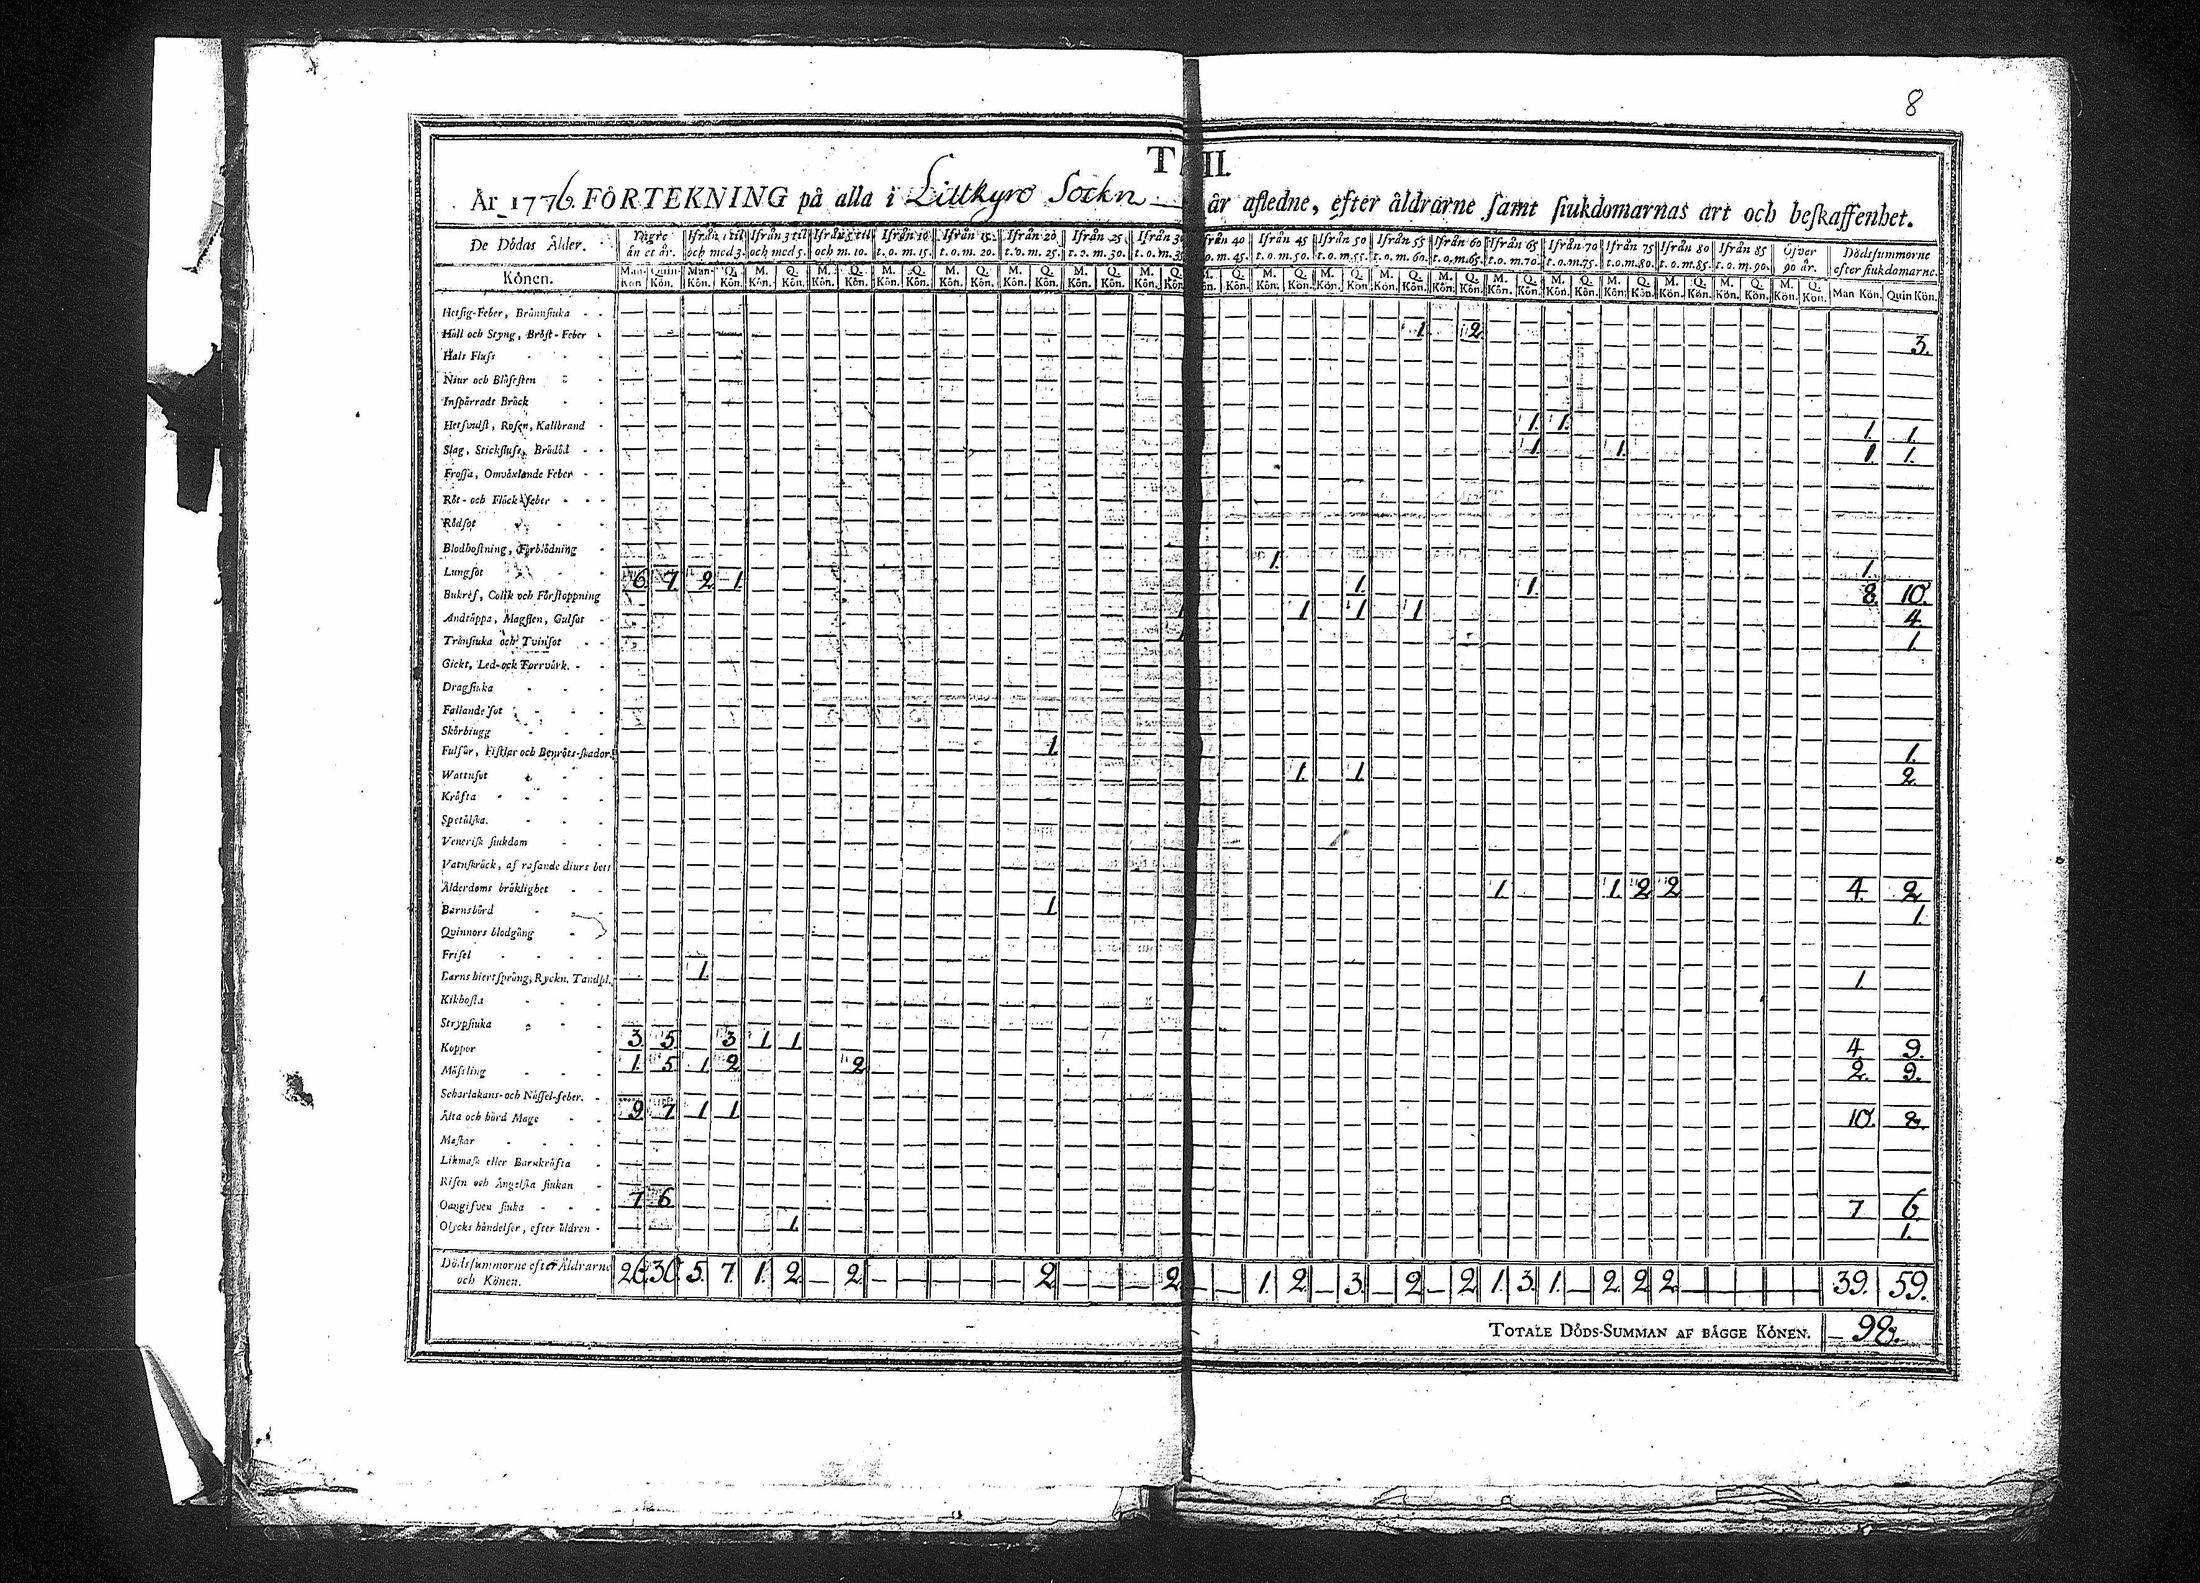 8
T II.
År 1776 FÖRTEKNING på alla i Littkyro Sockn år afledne, efter åldrarne samt siukdomarnas art och beskaffenhet.
De Dödas Ålder. Yngre än et år. Ifrån 1 til och med 3. Ifrån 3 til och med 5. Ifrån 5 til och m. 10. Ifrån 10 t. o. m. 15. Ifrån 15 t. o. m. 20. Ifrån 20 t. o. m. 25. Ifrån 25 t. o. m. 30. Ifrån 30 t. o. m. 35. från 40 o. m. 45. Ifrån 45 t. o. m. 50. Ifrån 50 t. o. m. 55. Ifrån 55 t. o. m. 60. Ifrån 60 t. o. m. 65. Ifrån 65 t. o. m. 70. Ifrån 70 t. o. m. 75. Ifrån 75 t. o. m. 80. Ifrån 80 t. o. m. 85. Ifrån 85 t. o. m. 90. Öfver 90 år. Dödssummorne efter siukdomarne.
Könen. Man Kön. Quin Kön. Man Kön. Q. Kön. M. Kön. Q. Kön. M. Kön. Q. Kön. M. Kön. Q. Kön. M. Kön. Q. Kön. M. Kön. Q. Kön. M. Kön. Q. Kön. M. Kön. Q. Kön. M. Kön. Q. Kön. M. Kön. Q. Kön. M. Kön. Q. Kön. M. Kön. Q. Kön. M. Kön. Q. Kön. M. Kön. Q. Kön. M. Kön. Q. Kön. M. Kön. Q. Kön. M. Kön. Q. Kön. M. Kön. Q. Kön. M. Kön. Q. Kön. Man Kön. Quin Kön.
Hetsig-Feber, Brännsiuka
Håll och Styng, Bröst-Feber 1. 2 3.
Hals Fluss
Niur och Blåsesten
Inspärradt Bråck
Hetsvulst, Rosen, Kallbrand 1. 1. 1. 1.
Slag, Stickfluss, Brådöd 1 1. 1. 1.
Frossa, Omväxlande Feber
Röt- och Fläck-feber
Rödsot
Blodhostning, Förblödning
Lungsot 1. 1.
Bukref, Colik och Förstoppning 6 7. 2 1. 1. 1. 8. 10.
Andtäppa, Magsten, Gulsot 1 1 1 1 4.
Tränsiuka och Tvinsot 1 1.
Gickt, Led- ock Torrvärk.
Dragsiuka
Fallande sot
Skörbiugg
Fulsår, Fistlar och Benröts-skador 1. 1.
Wattusot 1. 1. 2
Kräfta
Spetälska.
Venerisk siukdom
Vatnskräck, af rasande diurs bett
Ålderdoms bräklighet 1. 1. 2 2 4. 2
Barnsbörd 1. 1.
Quinnors blodgång
Frisel
Barns hiertsprång, Ryckn. Tandpl. 1. 1.
Kikhosta
Strypsiuka
Koppor 3. 5 3 1. 1. 4 9.
Mässling 1. 5 1 2 2 2. 9.
Scharlakans- och Nässel-feber.
Älta och hård Mage 9 7. 1 1 10. 8.
Maskar
Likmask eller Barnkräfta
Risen och Ängelska siukan
Oangifven siuka 7 6 7 6
Olycks händelser, efter åldren 1. 1.
Dödssummorne efter Åldrarne och Könen. 26. 30. 5. 7. 1. 2. — 2. — — — — — 2 — — — 2 — — 1. 2. — 3. — 2 — 2 1. 3 1. — 2. 2 2 — — — — — 39. 59.
TOTALE DÖDS-SUMMAN AF BÄGGE KÖNEN. — 98.